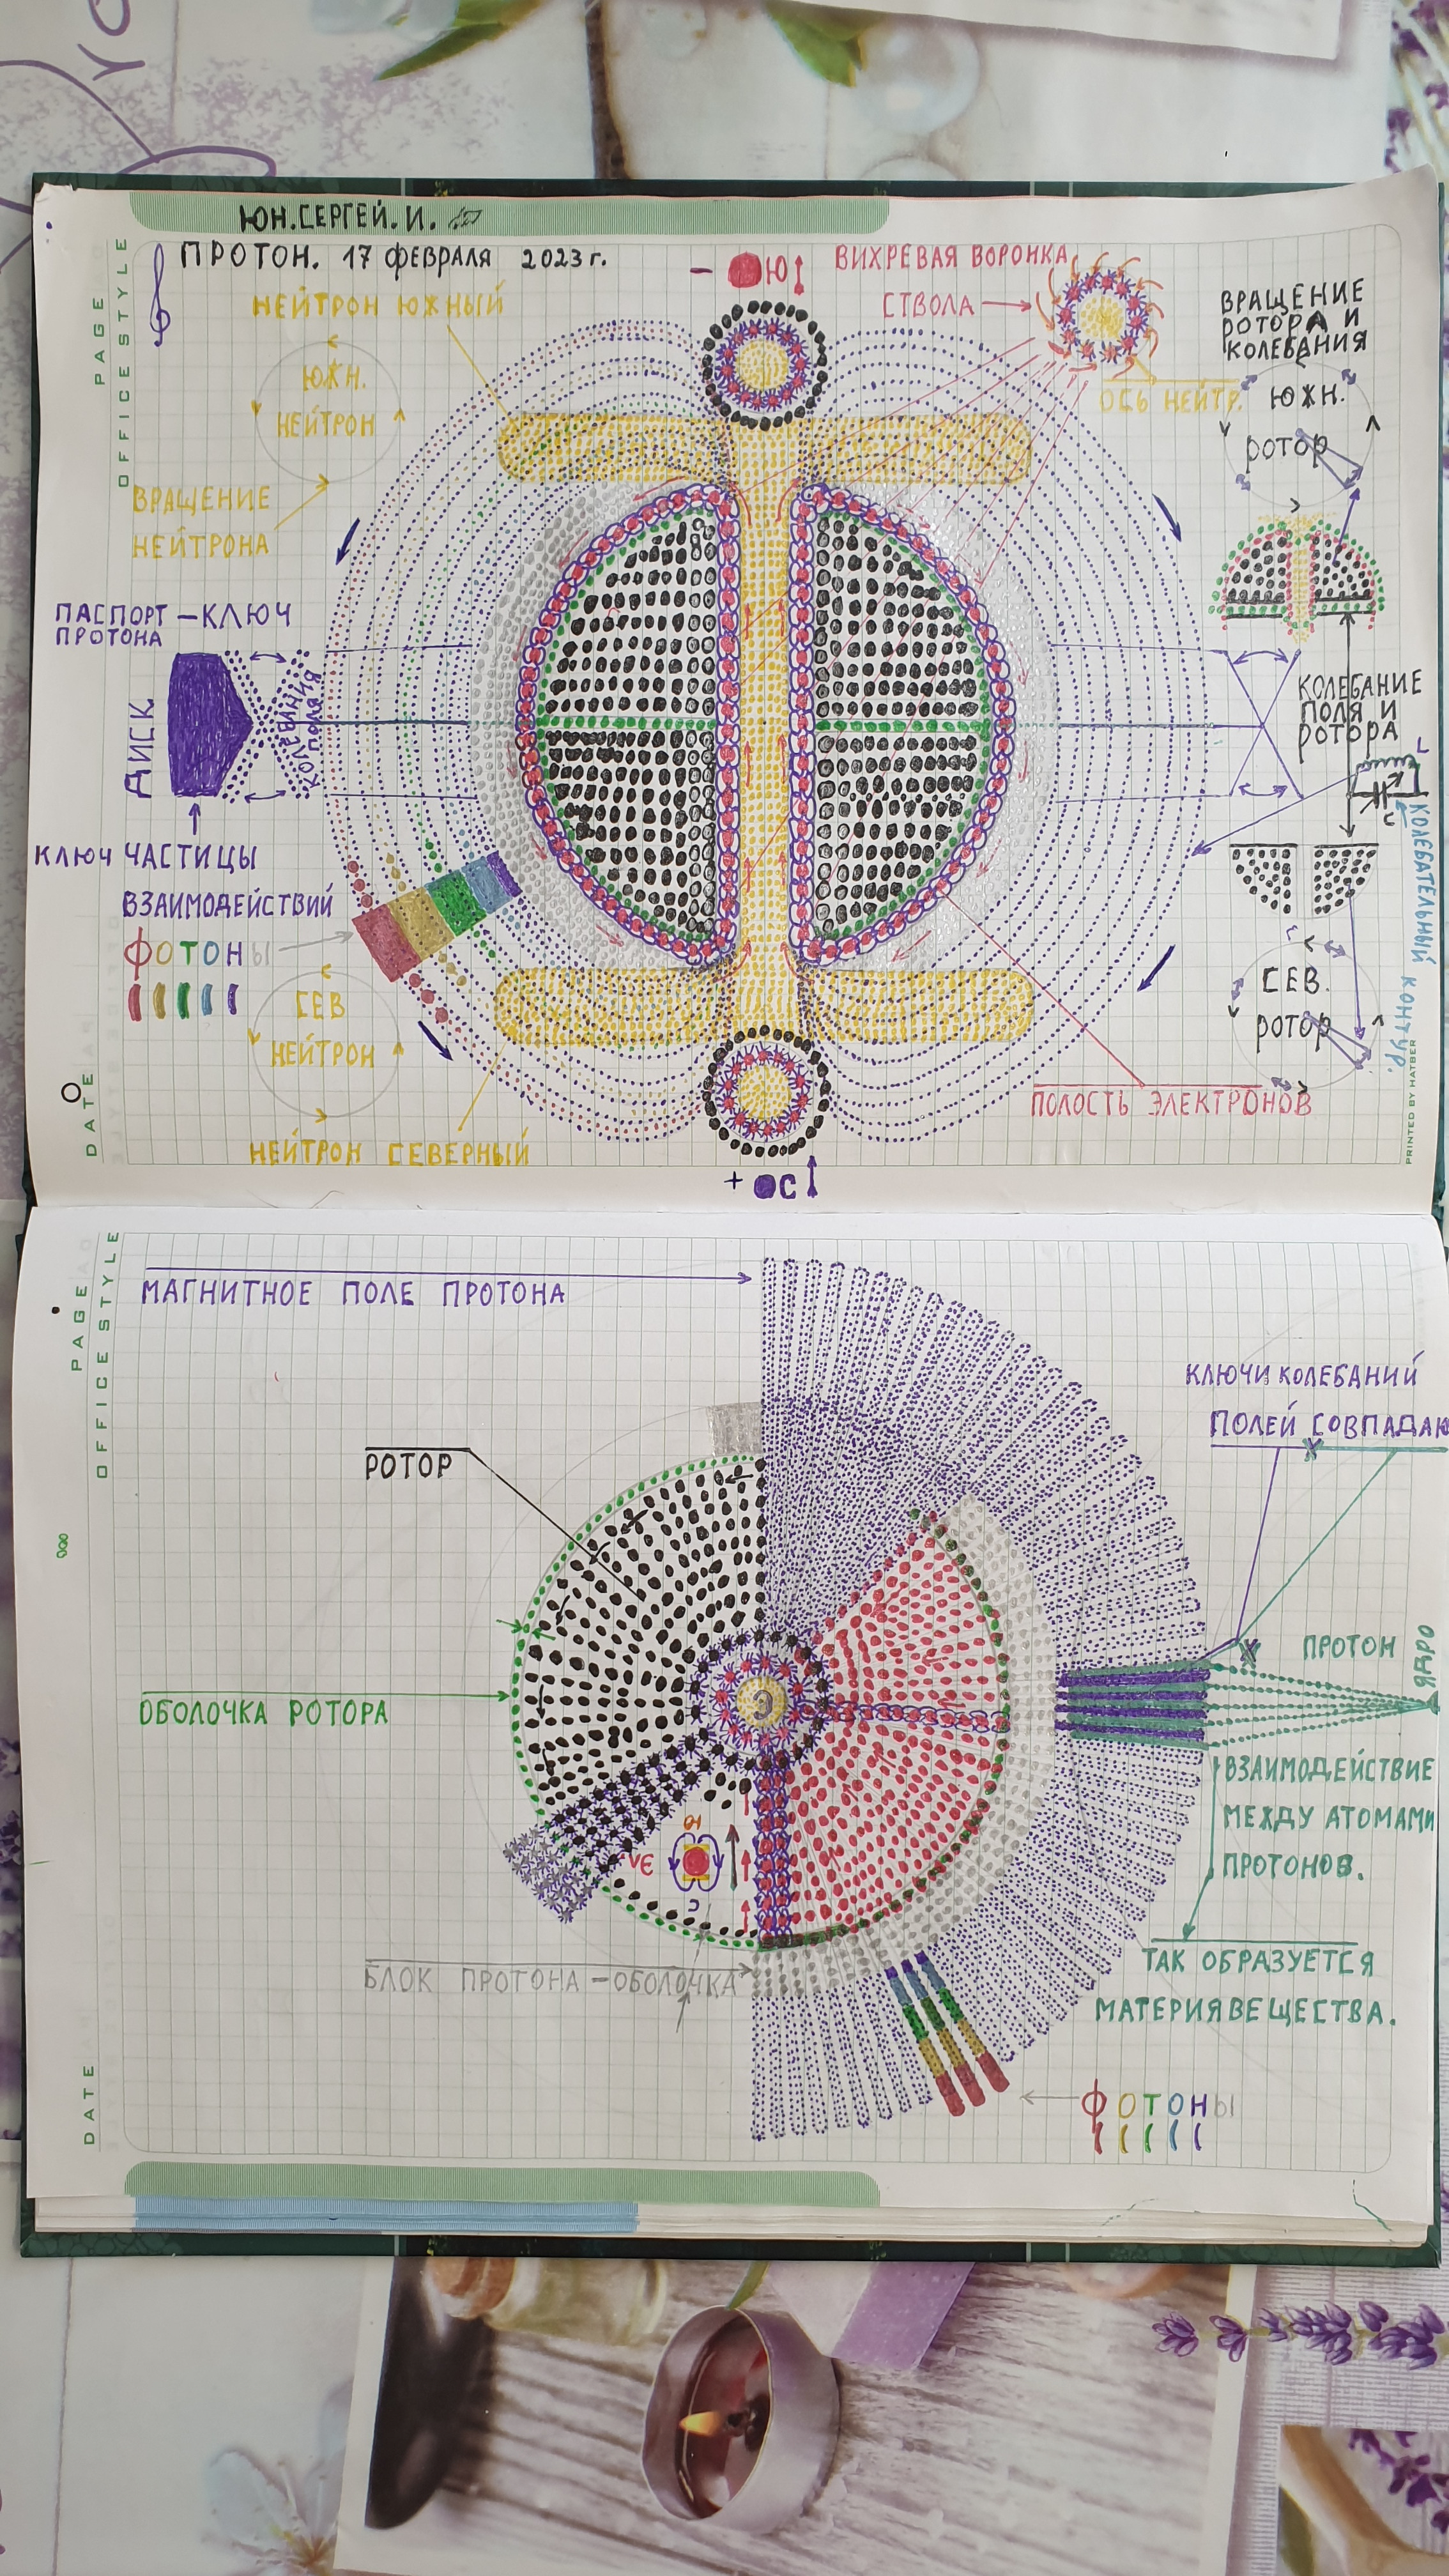 ЮН.СЕРГЕЙ.И.
ПРОТОН. 17 ФЕВРАЛЯ 2023г.
OFFICE STYLE
PAGE
DATE
- Ю
ВИХРЕВАЯ ВОРОНКА
СТВОЛА
ОСЬ НЕЙТР.
НЕЙТРОН ЮЖНЫЙ
ЮЖН.
НЕЙТРОН
ВРАЩЕНИЕ
НЕЙТРОНА
ВРАЩЕНИЕ
РОТОРА И
КОЛЕБАНИЯ
ЮЖН.
РОТОР
ПАСПОРТ - КЛЮЧ
ПРОТОНА
ДИСК
КОЛЕБАНИЯ
ПОЛЯ
КОЛЕБАНИЕ
ПОЛЯ И
РОТОРА
L
C
КОЛЕБАТЕЛЬНЫЙ КОНТУР.
КЛЮЧ ЧАСТИЦЫ
ВЗАИМОДЕЙСТВИЙ
ФОТОНЫ
СЕВ
НЕЙТРОН
НЕЙТРОН СЕВЕРНЫЙ
СЕВ.
РОТОР
ПОЛОСТЬ ЭЛЕКТРОНОВ
+ С
PRINTED BY HATBER
OFFICE STYLE
PAGE
DATE
МАГНИТНОЕ ПОЛЕ ПРОТОНА
КЛЮЧИ КОЛЕБАНИЙ
ПОЛЕЙ СОВПАДАЮ
РОТОР
ОБОЛОЧКА РОТОРА
Э
ПРОТОН
ЯДРО
ВЗАИМОДЕЙСТВИЕ
МЕЖДУ АТОМАМИ
ПРОТОНОВ.
Ю
С
БЛОК ПРОТОНА - ОБОЛОЧКА
ТАК ОБРАЗУЕТСЯ
МАТЕРИЯ ВЕЩЕСТВА.
ФОТОНЫ